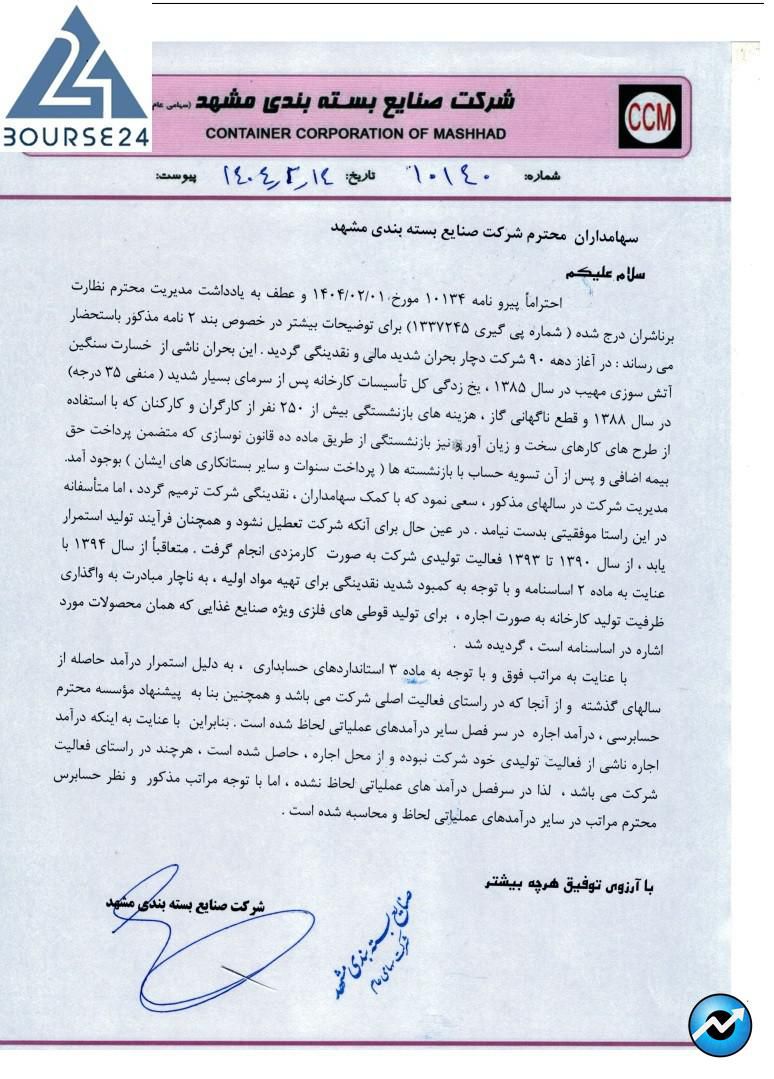 BOURSE24
شرکت صنایع بسته بندی مشهد (سهامی عام
CONTAINER CORPORATION OF MASHHAD
CCM
شماره: ۱۰۱۴۰ تاریخ: ۱۴۰۴٫۲٫۱۴ پیوست:
سهامداران محترم شرکت صنایع بسته بندی مشهد
سلام علیکم
احتراماً پیرو نامه ۱۰۱۳۴ مورخ ۱۴۰۴/۰۲/۰۱ و عطف به یادداشت مدیریت محترم نظارت
برناشران درج شده ( شماره پی گیری ۱۳۳۷۲۴۵) برای توضیحات بیشتر در خصوص بند ۲ نامه مذکور باستحضار
می رساند : در آغاز دهه ۹۰ شرکت دچار بحران شدید مالی و نقدینگی گردید . این بحران ناشی از خسارت سنگین
آتش سوزی مهیب در سال ۱۳۸۵ ، یخ زدگی کل تأسیسات کارخانه پس از سرمای بسیار شدید ( منفی ۳۵ درجه)
در سال ۱۳۸۸ و قطع ناگهانی گاز ، هزینه های بازنشستگی بیش از ۲۵۰ نفر از کارگران و کارکنان که با استفاده
از طرح های کارهای سخت و زیان آور و نیز بازنشستگی از طریق ماده ده قانون نوسازی که متضمن پرداخت حق
بیمه اضافی و پس از آن تسویه حساب با بازنشسته ها ( پرداخت سنوات و سایر بستانکاری های ایشان ) بوجود آمد.
مدیریت شرکت در سالهای مذکور ، سعی نمود که با کمک سهامداران ، نقدینگی شرکت ترمیم گردد ، اما متأسفانه
در این راستا موفقیتی بدست نیامد . در عین حال برای آنکه شرکت تعطیل نشود و همچنان فرآیند تولید استمرار
یابد ، از سال ۱۳۹۰ تا ۱۳۹۳ فعالیت تولیدی شرکت به صورت کارمزدی انجام گرفت . متعاقباً از سال ۱۳۹۴ با
عنایت به ماده ۲ اساسنامه و با توجه به کمبود شدید نقدینگی برای تهیه مواد اولیه ، به ناچار مبادرت به واگذاری
ظرفیت تولید کارخانه به صورت اجاره ، برای تولید قوطی های فلزی ویژه صنایع غذایی که همان محصولات مورد
اشاره در اساسنامه است ، گردیده شد .
با عنایت به مراتب فوق و با توجه به ماده ۳ استانداردهای حسابداری ، به دلیل استمرار درآمد حاصله از
سالهای گذشته و از آنجا که در راستای فعالیت اصلی شرکت می باشد و همچنین بنا به پیشنهاد مؤسسه محترم
حسابرسی ، درآمد اجاره در سر فصل سایر درآمدهای عملیاتی لحاظ شده است . بنابراین با عنایت به اینکه درآمد
اجاره ناشی از فعالیت تولیدی خود شرکت نبوده و از محل اجاره ، حاصل شده است ، هرچند در راستای فعالیت
شرکت می باشد ، لذا در سرفصل درآمد های عملیاتی لحاظ نشده ، اما با توجه مراتب مذکور و نظر حسابرس
محترم مراتب در سایر درآمدهای عملیاتی لحاظ و محاسبه شده است .
با آرزوی توفیق هرچه بیشتر
شرکت صنایع بسته بندی مشهد
صنایع بسته بندی مشهد
شرکت سهامی عام